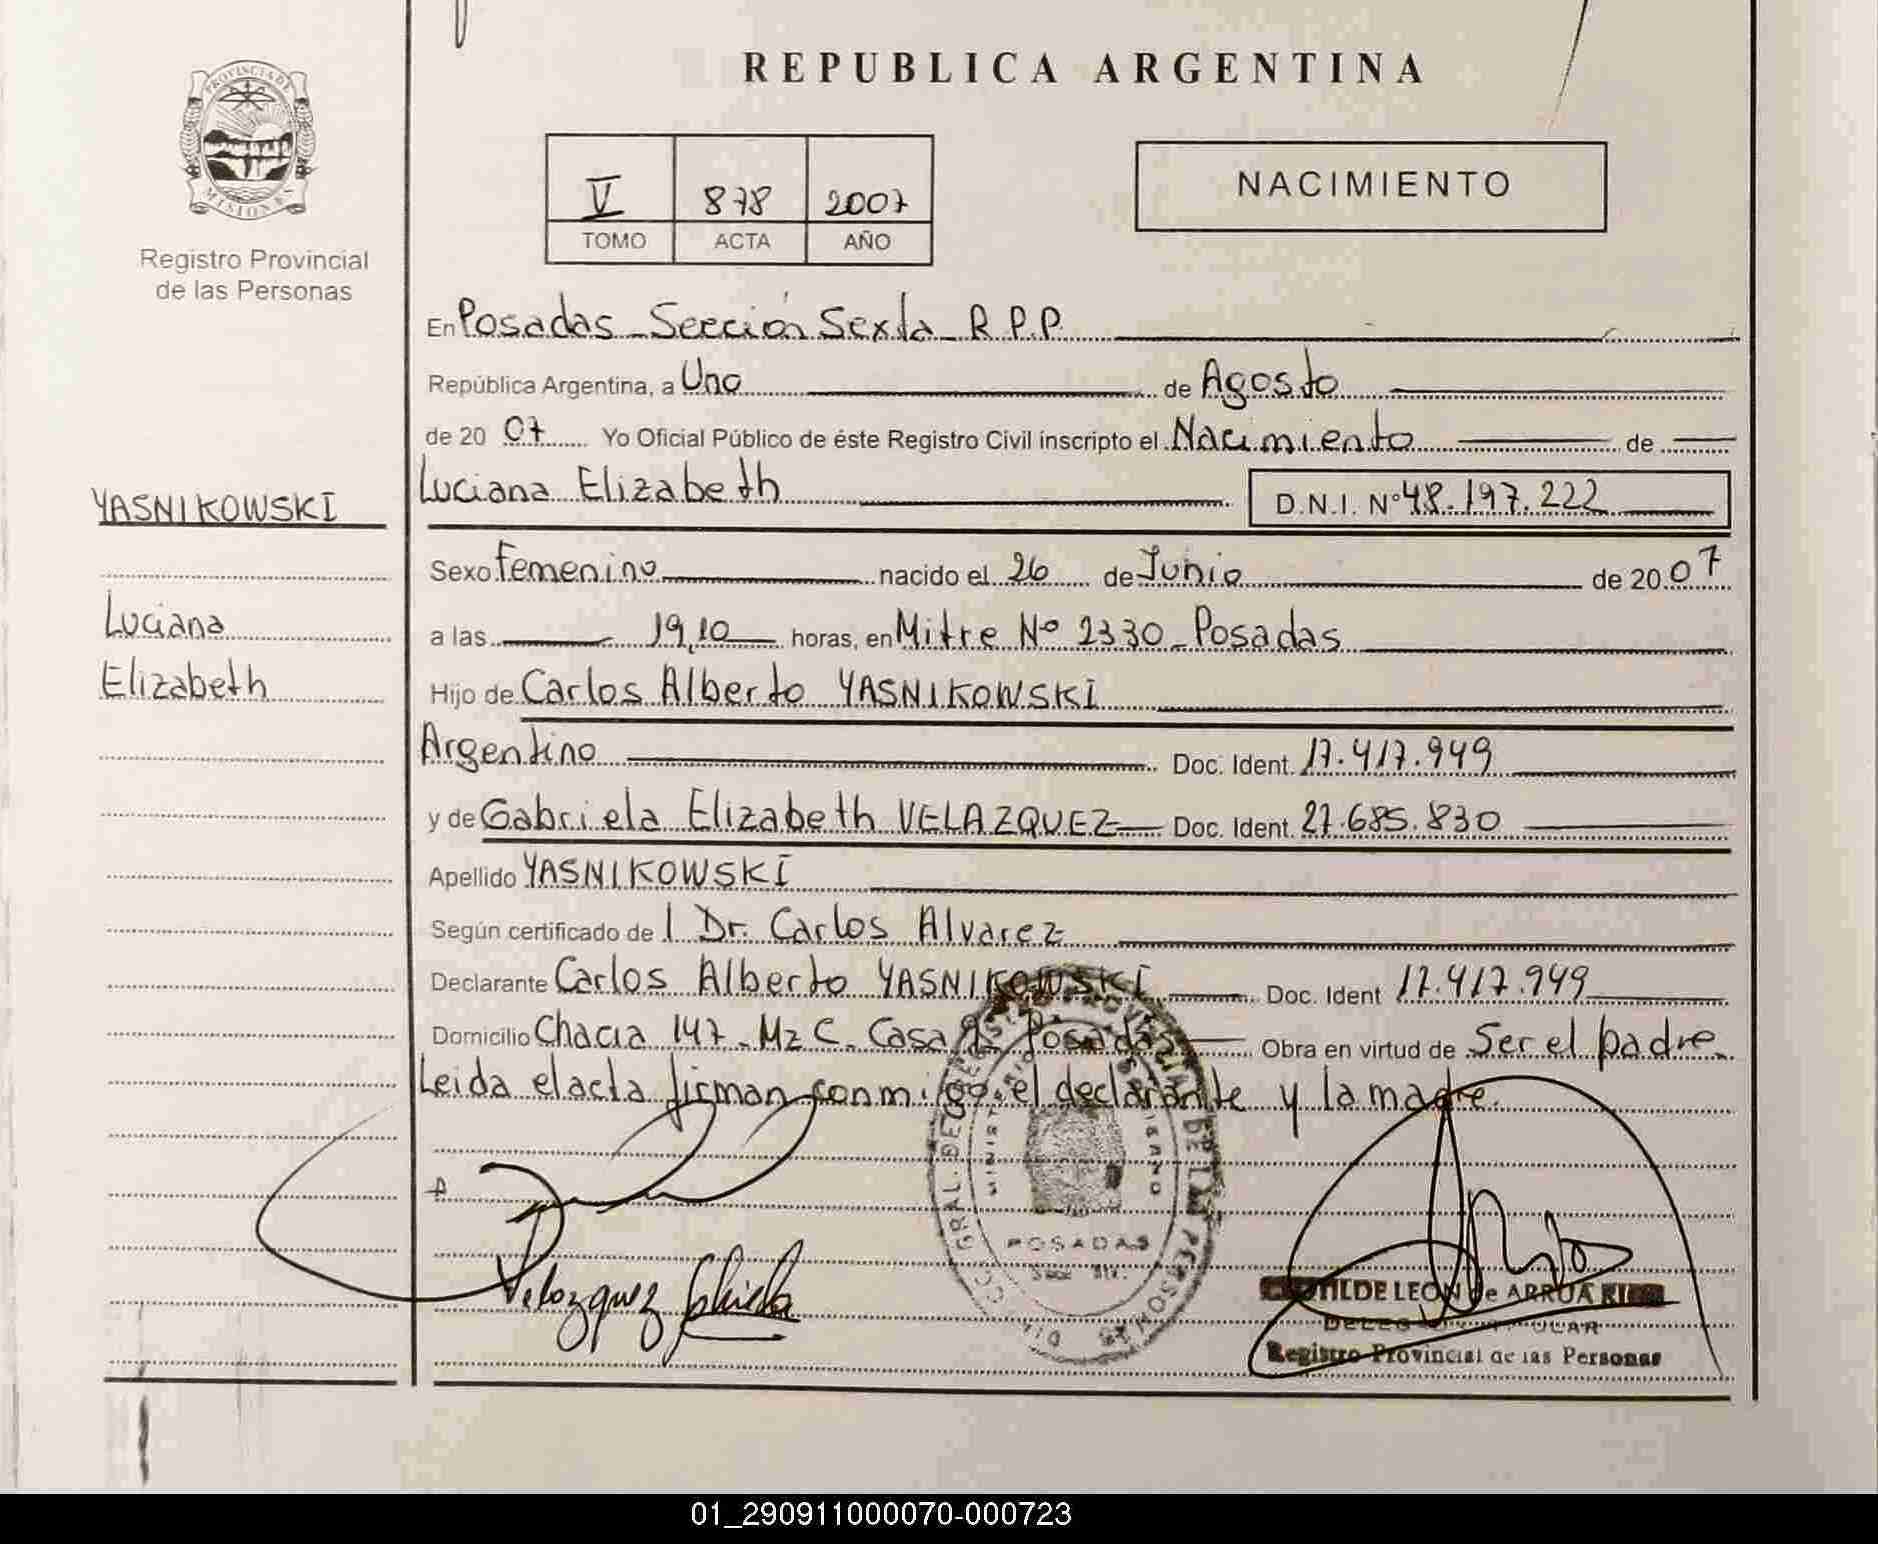 PROVINCIA DE
MISIONES
Registro Provincial
de las Personas
REPUBLICA ARGENTINA
V 878 2007
TOMO ACTA AÑO
NACIMIENTO
En Posadas - Sección Sexta R.P.P.
República Argentina, a Uno de Agosto
de 2007 Yo Oficial Público de éste Registro Civil inscripto el Nacimiento de
YASNIKOWSKI
Luciana
Elizabeth
Luciana Elizabeth D.N.I. Nº 48.197.222
Sexo Femenino nacido el 26 de Junio de 2007
a las 19,10 horas, en Mitre Nº 2330 - Posadas
Hijo de Carlos Alberto YASNIKOWSKI
Argentino Doc. Ident. 17.417.949
y de Gabriela Elizabeth VELAZQUEZ Doc. Ident. 27.685.830
Apellido YASNIKOWSKI
Según certificado de l Dr. Carlos Alvarez
Declarante Carlos Alberto YASNIKOWSKI Doc. Ident 17.417.949
Domicilio Chacra 147 - Mz C - Casa Posadas Obra en virtud de Ser el padre
Leida el acta firman conmigo el declarante y la madre.
POSADAS
Velazquez
LEON de ARRUA
Registro Provincial de las Personas
01_290911000070-000723